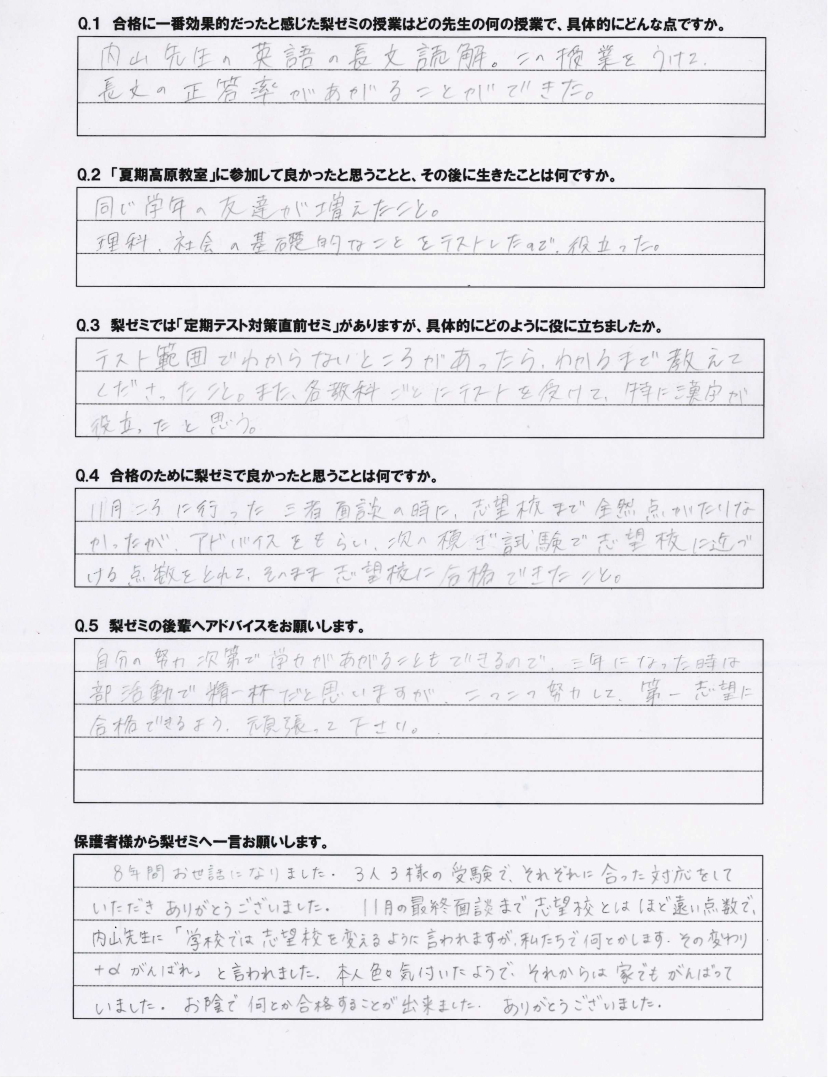 Q.1 合格に一番効果的だったと感じた梨ゼミの授業はどの先生の何の授業で、具体的にどんな点ですか。
内山先生の英語の長文読解。この授業をうけて、
長文の正答率があがることができた。
Q.2 「夏期高原教室」に参加して良かったと思うことと、その後に生きたことは何ですか。
同じ学年の友達が増えたこと。
理科、社会の基礎的なことをテストしたので、役立った。
Q.3 梨ゼミでは「定期テスト対策直前ゼミ」がありますが、具体的にどのように役に立ちましたか。
テスト範囲でわからないところがあったら、わかるまで教えて
くださったこと。また、各教科ごとにテストを受けて、特に漢字が
役立ったと思う。
Q.4 合格のために梨ゼミで良かったと思うことは何ですか。
11月ころに行った三者面談の時に、志望校まで全然点がたりな
かったが、アドバイスをもらい、次の模ぎ試験で志望校に近づ
ける点数をとれて、そのまま志望校に合格できたこと。
Q.5 梨ゼミの後輩へアドバイスをお願いします。
自分の努力次第で学力があがることもできるので、三年になった時は
部活動で精一杯だと思いますが、こつこつ努力して、第一志望に
合格できるよう、頑張って下さい。
保護者様から梨ゼミへ一言お願いします。
8年間お世話になりました。3人3様の受験で、それぞれに合った対応をして
いただきありがとうございました。 11月の最終面談まで志望校とはほど遠い点数で、
内山先生に「学校では志望校を変えるように言われますが、私たちで何とかします。その変わり
+αがんばれ」と言われました。本人色々気付いたようで、それからは家でもがんばって
いました。お陰で何とか合格することが出来ました。 ありがとうございました。